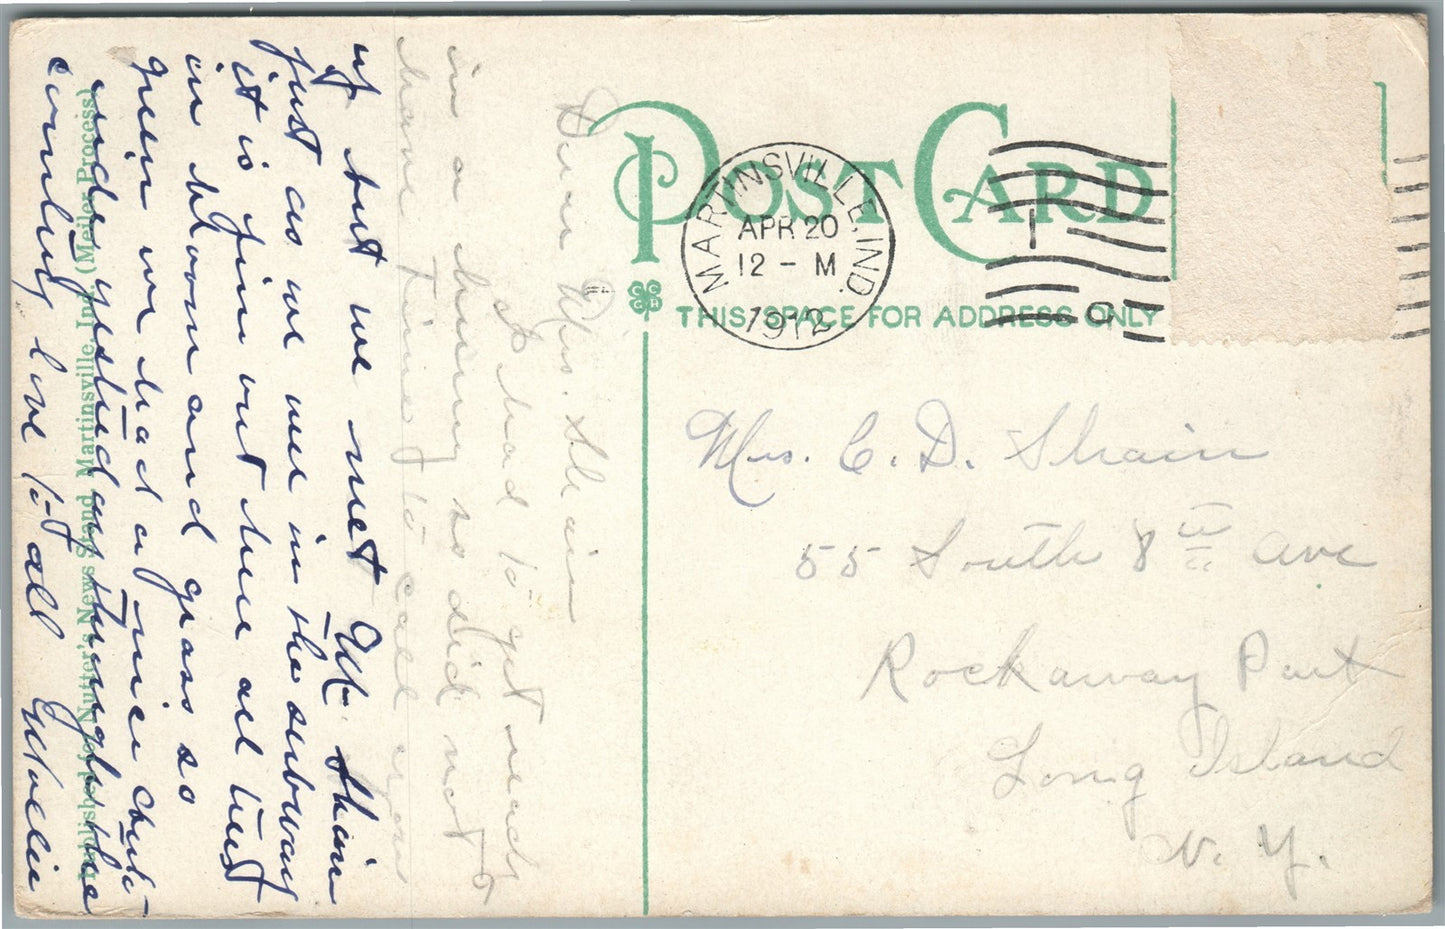 POST CARD
THIS SPACE FOR ADDRESS ONLY
MARTINSVILLE, IND.
APR 20
12 - M
1912
Mrs. C. D. Shain
55 South 8th Ave
Rockaway Park
Long Island
N. Y.
Dear Mrs. Shain
I had to get ready
in a hurry so did not
have time to call you
up but we met Mr. Shain
just as we were in the subway
it is fine out here all trees
in bloom and grass so
green we had a nice auto
ride yesterday through the
country love to all
Published by Nutter's News Stand, Martinsville, Ind. (Meiler Process)